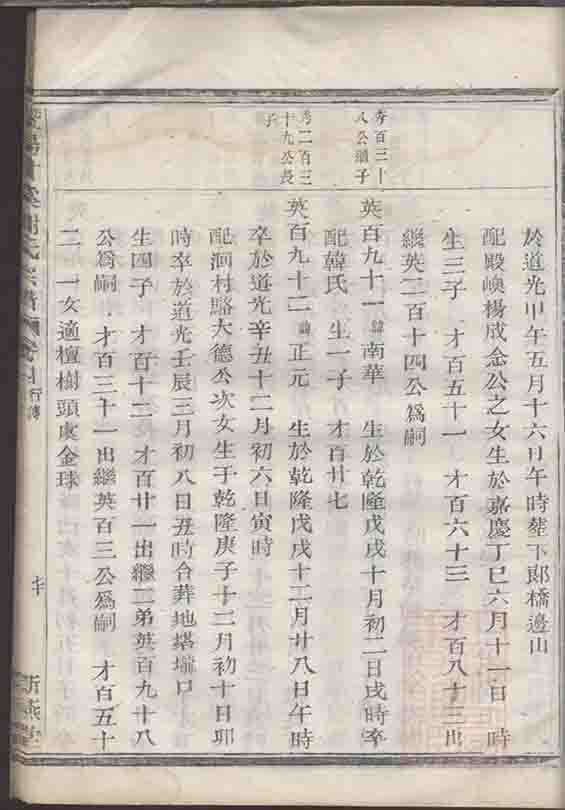 於道光甲午五月十六日午時葬下郞橋邊山
配殿㬇楊成念公之女生於嘉慶丁巳六月十一日　時
生三子　才百五十一　才百六十三　才百八十三出
繼英二百十四公爲嗣
秀百三十
八公頭子
英百九十一諱南華　生於乾隆戊戌十月初二日戌時卒
配韓氏　生一子　才百廿七
秀二百三
十九公長
子
英百九十二諱正元　生於乾隆戊戌十二月廿八日午時
卒於道光辛丑十二月初六日寅時
配洞村駱大德公次女生于乾隆庚子十二月初十日卯
時卒於道光壬辰三月初八日丑時合葬地塔壠口
生四子　才百十二　才百廿一出繼二弟英百九十八
公爲嗣　才百三十一出繼英百三公爲嗣　才百五十
二　一女適檀樹頭虞金球
氏宗譜
行傳